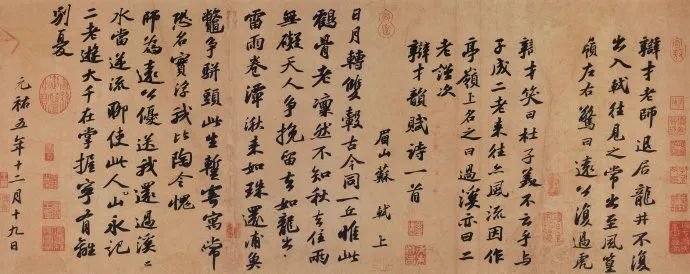 辯才老師退居龍井不復
出入軾往見之常出至風篁
嶺左右驚曰遠公復過虎
辯才笑曰杜子美不云乎與
子成二老來往亦風流因作
亭嶺上名之曰過溪亦曰二
老謹次
辯才韻賦詩一首
眉山蘇軾上
日月轉雙轂古今同一丘惟此
鶴骨老凜然不知秋去住兩
無礙天人爭挽留去如龍出
雷雨卷潭湫來如珠還浦魚
鱉爭駢頭此生暫寄寓常
恐名實浮我比陶令愧
師為遠公優送我還過溪〻
水當逆流聊使此人山永記
二老遊大千在掌握寧有離
別憂
元祐五年十二月十九日